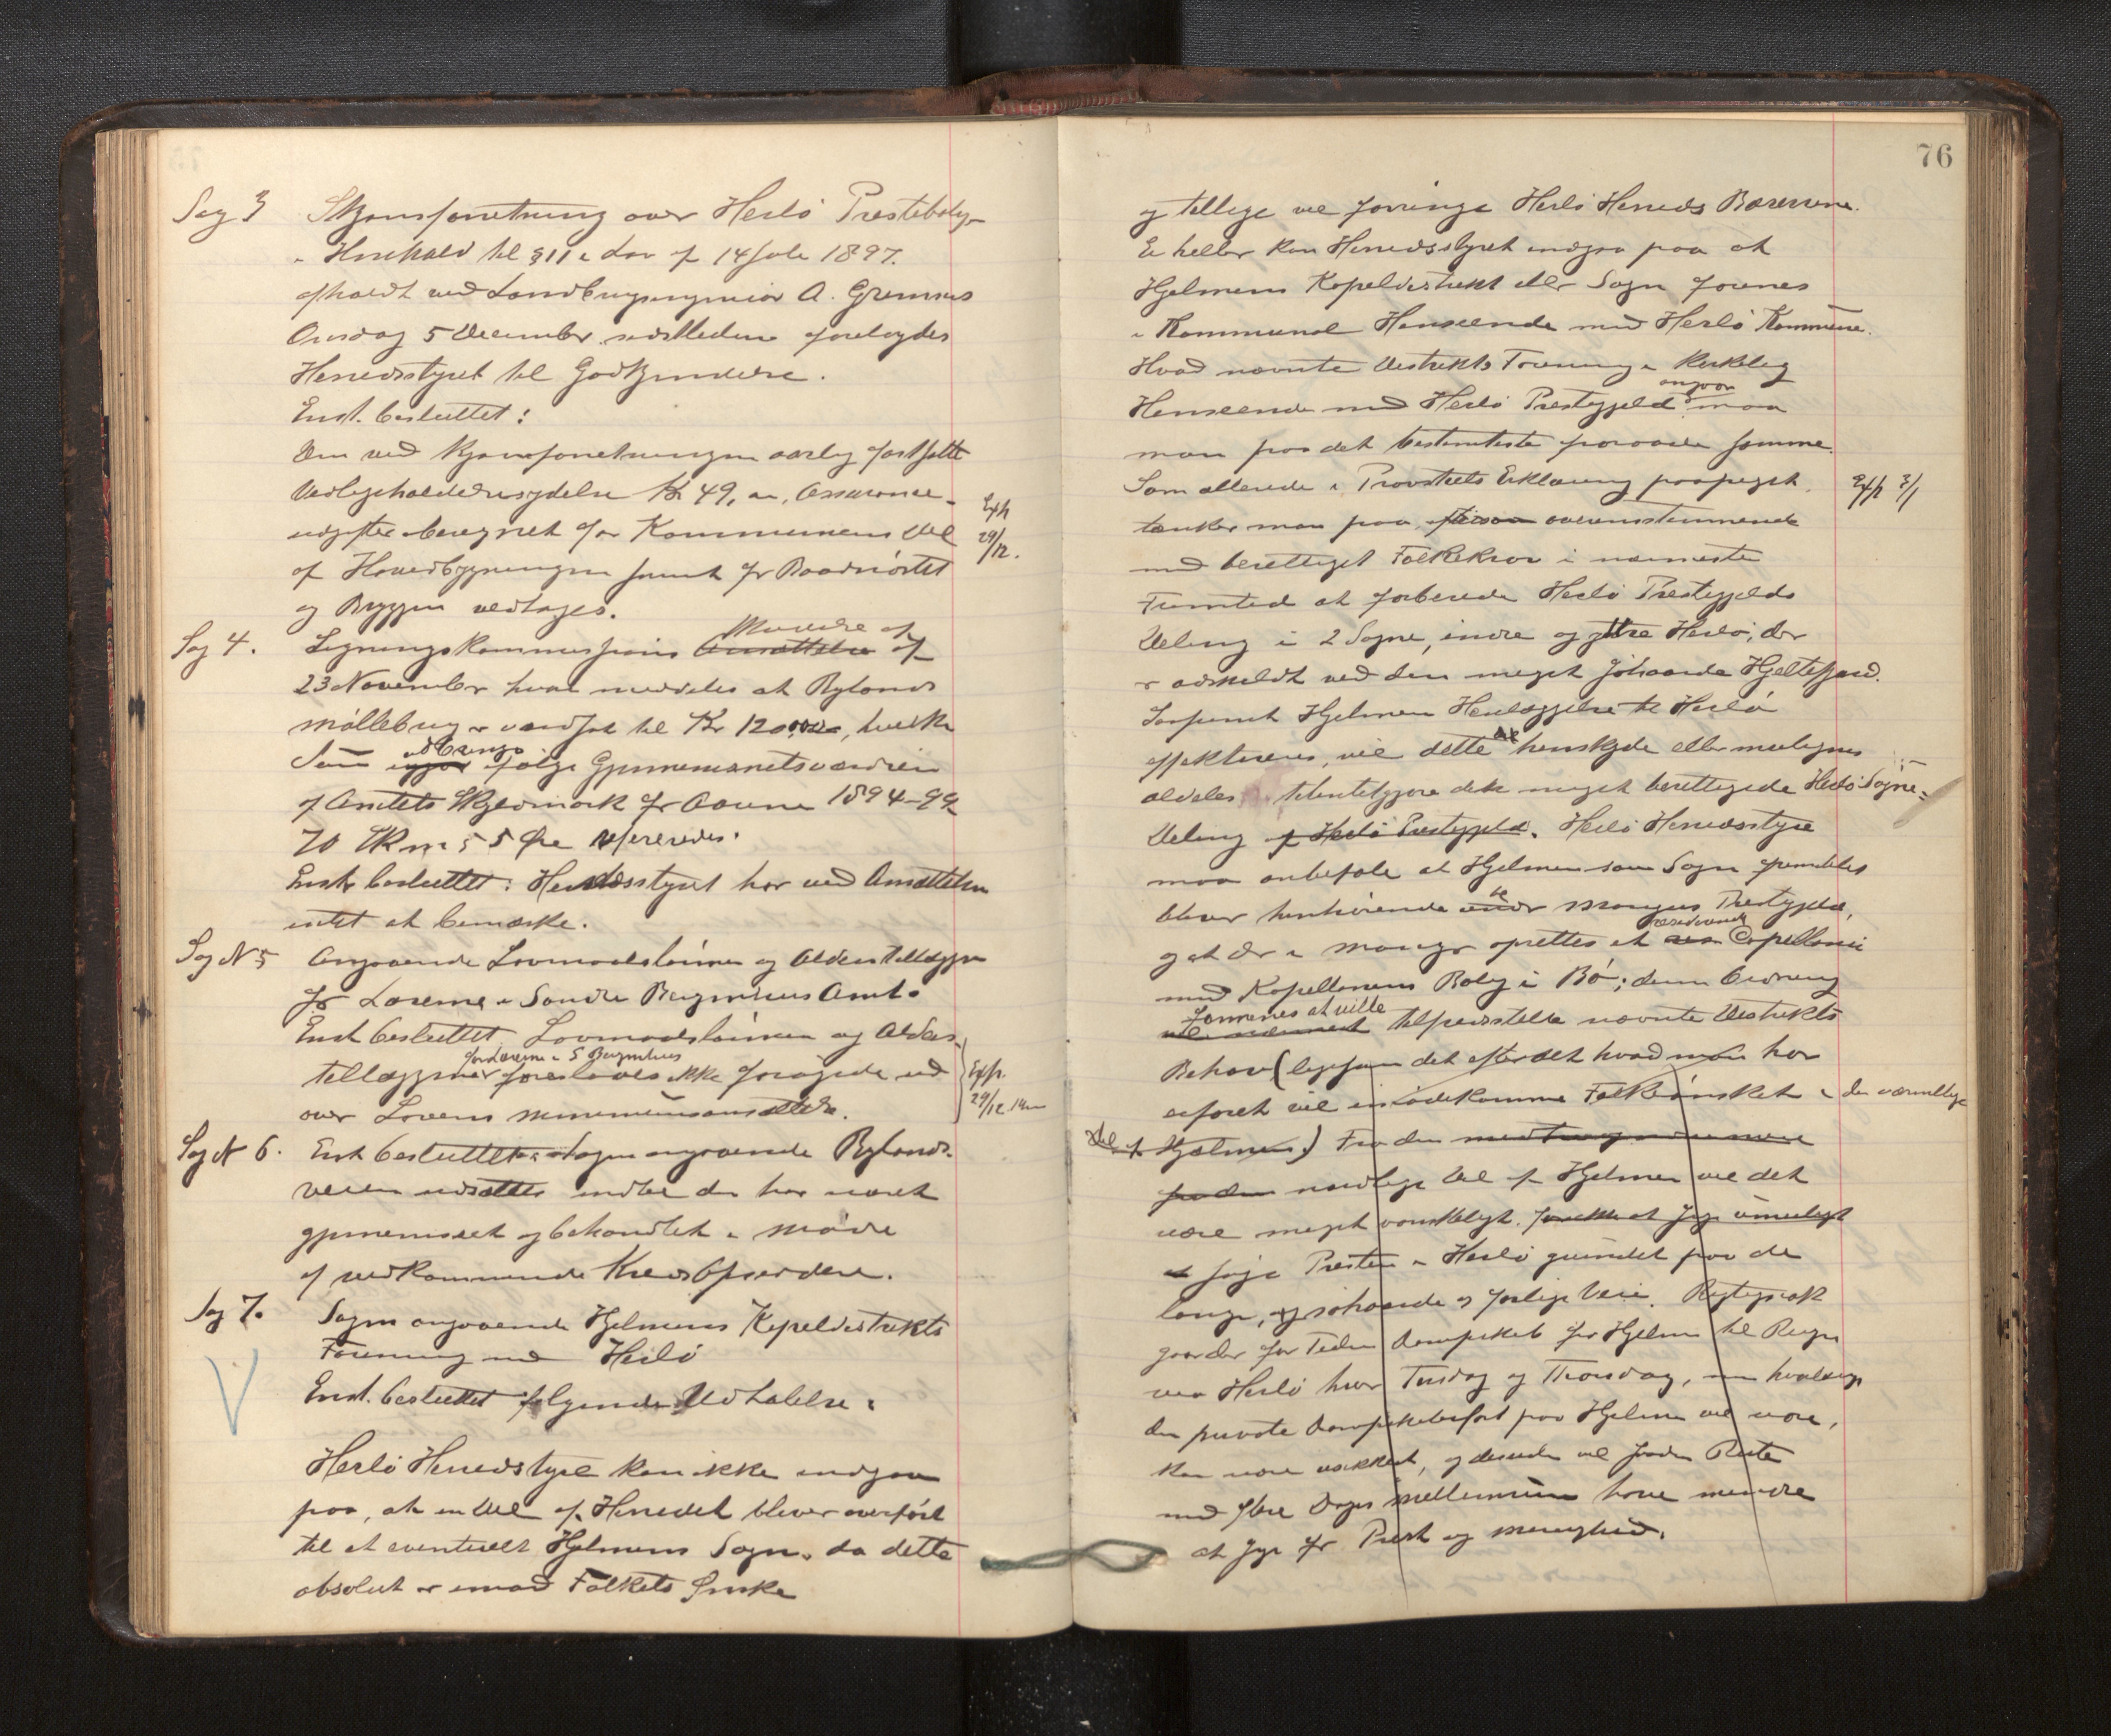 Sag 3 Skjønsforretning over Herlø Prestebolig
i Henhold til § 11 i Lov af 14 Juli 1897.
afholdt ved Landbrugsingeniør A. Grimnes
Onsdag 5 December sidstleden forelagdes
Herredsstyret til Godkjendelse.
Enst. besluttet:
Den ved Skjønsforretningen aarlig fastsatte
Vedligeholdelsesydelse Kr 49, Assurance-
udgifter beregnet for Kommunens Del
Exp 29/12.
af Hovedbygningen samt for Baadnøstet
og Bryggen vedtages.
Sag 4. Ligningskommissjonens Ansættelse Møvdre af
23 November hvori meddeles at Rylands
Møllebrug er værdsat til Kr 120,000, hvilke
Sum udbringer ifølge Gjennemsnitsværdien
af Amtets Skyldmark for Aarene 1894-99
70 Skm 55 Øre refereredes.
Enst. besluttet: Herredsstyret har ved Ansættelsen
intet at bemærke.
Sag N 5 Angaaende Lovmaadslønnen og Alderstillæggene
for Lærerne i Søndre Bergenhus Amt.
Enst. besluttet Lovmaadslønnen og Alders-
for Lærerne i S Bergenhus
tillæggener foreslaaes ikke forøgede ud
Exp. 29/12
over Lovens minimumsansættelse.
Sag N 6. Enst. besluttet: Sagen angaaende Rylands-
veien udsættes indtil den har været
gjennemseet og behandlet i Møde
af vedkommende Kredsopsiddere.
Sag 7. Sagen angaaende Hjelmens Kapeldistrikts
Forening med Herlø
Enst. besluttet følgende Udtalelse:
Herlø Herredstyre kan ikke indgaa
paa, at en Del af Herredet bliver overført
til et eventuelt Hjelmens Sogn, da dette
absolut er imod Folkets Ønske
76
og tillige vil forringe Herlø Herreds Bæreevne.
Ei heller kan Herredsstyret indgaa paa at
Hjelmens Kapeldistrikt eller Sogn forenes
i Kommunal Henseende med Herlø Kommune.
Hvad nævnte Distrikts Forening i kirkelig
Henseende med Herlø Prestegjeld angaar maa
man paa det bestemteste fraraade samme.
Som allerede i Provstiets Erklæring paapeget,
Exp 3/1
tænker man paa overensstemmende
med berettiget Folkekrav i nærmeste
Fremtid at forberede Herlø Prestegjelds
Deling i 2 Sogne, indre og ytre Herlø, der
er adskildt ved den meget sjøhaarde Hjeltefjord.
Saafremt Hjelmens Henlæggelse til Herlø
effektueres, vil dette henskyde eller muligens
aldeles tilintetgjøre dette meget berettigede Herlø Sogne-
Deling af Herlø Prestegjeld. Herlø Herredsstyre
maa anbefale at Hjelmen som Sogn fremdeles
bliver henhørende under til Mangers Prestegjeld,
og at der i Manger oprettes et residerende Capellani
med Kapellanens Bolig i Bø; denne Ordning
formenes at ville tilfredsstille nævnte Distrikts
Behov (ligesom det efter alt hvad man har
erfaret vil imødekomme Folkeønsket i den væsentlige
Del af Hjelmen.) Fra den
fra den nordlige Del af Hjelmen vil det
være meget vanskeligt. at søge umuligt
at søge Presten i Herlø grundet paa de
lange, og sjøhaarde og farlige Veie. Rigtignok
gaar der for Tiden Dampskib fra Hjelmen til Bergen
via Herlø hver Tirsdag og Thorsdag, men hvorlænge
den private Dampskibsfart paa Hjelmen vil vare,
kan være usikkert, og desuden vil saadan Rute
med flere Dages Mellemrum have mindre
at sige for Prest og Menighed.